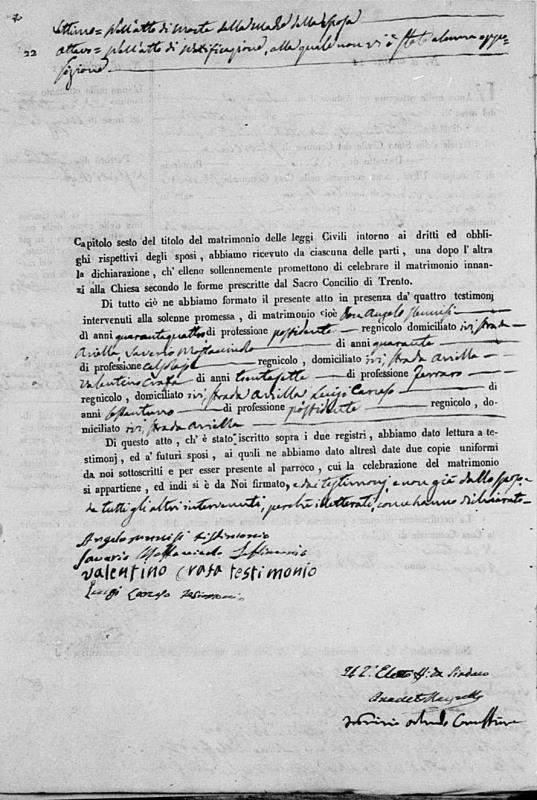 22
Settimo = Dell'atto di morte della madre della sposa
Ottavo = Dell'atto di notificazione, alla quale non vi è stata alcuna oppo=
sizione
Capitolo sesto del titolo del matrimonio delle leggi Civili intorno ai dritti ed obbli-
ghi rispettivi degli sposi, abbiamo ricevuto da ciascuna delle parti, una dopo l'altra
la dichiarazione, ch'elleno sollennemente promettono di celebrare il matrimonio innan-
zi alla Chiesa secondo le forme prescritte dal Sacro Concilio di Trento.
Di tutto ciò ne abbiamo formato il presente atto in presenza da' quattro testimonj
intervenuti alla solenne promessa, di matrimonio cioè Don Angelo
di anni quarantaquattro di professione possidente regnicolo domiciliato ivi strada
Saverio di anni quaranta
di professione regnicolo, domiciliato ivi strada
Valentino Crasa di anni trentasette di professione Ferraro
regnicolo, domiciliato ivi strada Luigi di
anni di professione possidente regnicolo, do-
miciliato ivi strada
Di questo atto, ch'è stato iscritto sopra i due registri, abbiamo dato lettura a te-
stimonj, ed a' futuri sposi, ai quali ne abbiamo dato altresì date due copie uniformi
da noi sottoscritti e per esser presente al parroco, cui la celebrazione del matrimonio
si appartiene, ed indi si è da Noi firmato, e dai testimonj e non già dallo sposo
da tutti gli altri intervenuti, perchè illetterati, come hanno dichiarato
Angelo testimonio
Savario testimonio
valentino crasa testimonio
Luigi testimonio
Il 2° Eletto ff. da Sindaco